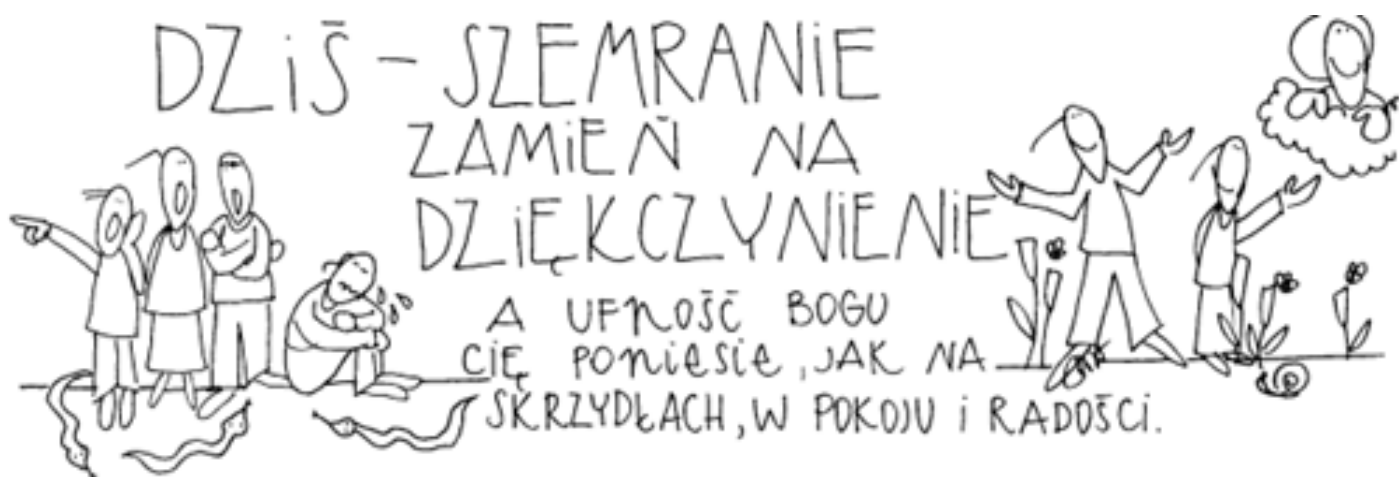 DZiŚ - SZEMRANIE
ZAMiEŃ NA
DZiĘKCZYNIENIE
A UFNOŚĆ BOGU
CiĘ PONIESIE, JAK NA
SKRZYDŁACH, W POKOJU i RADOŚCI.